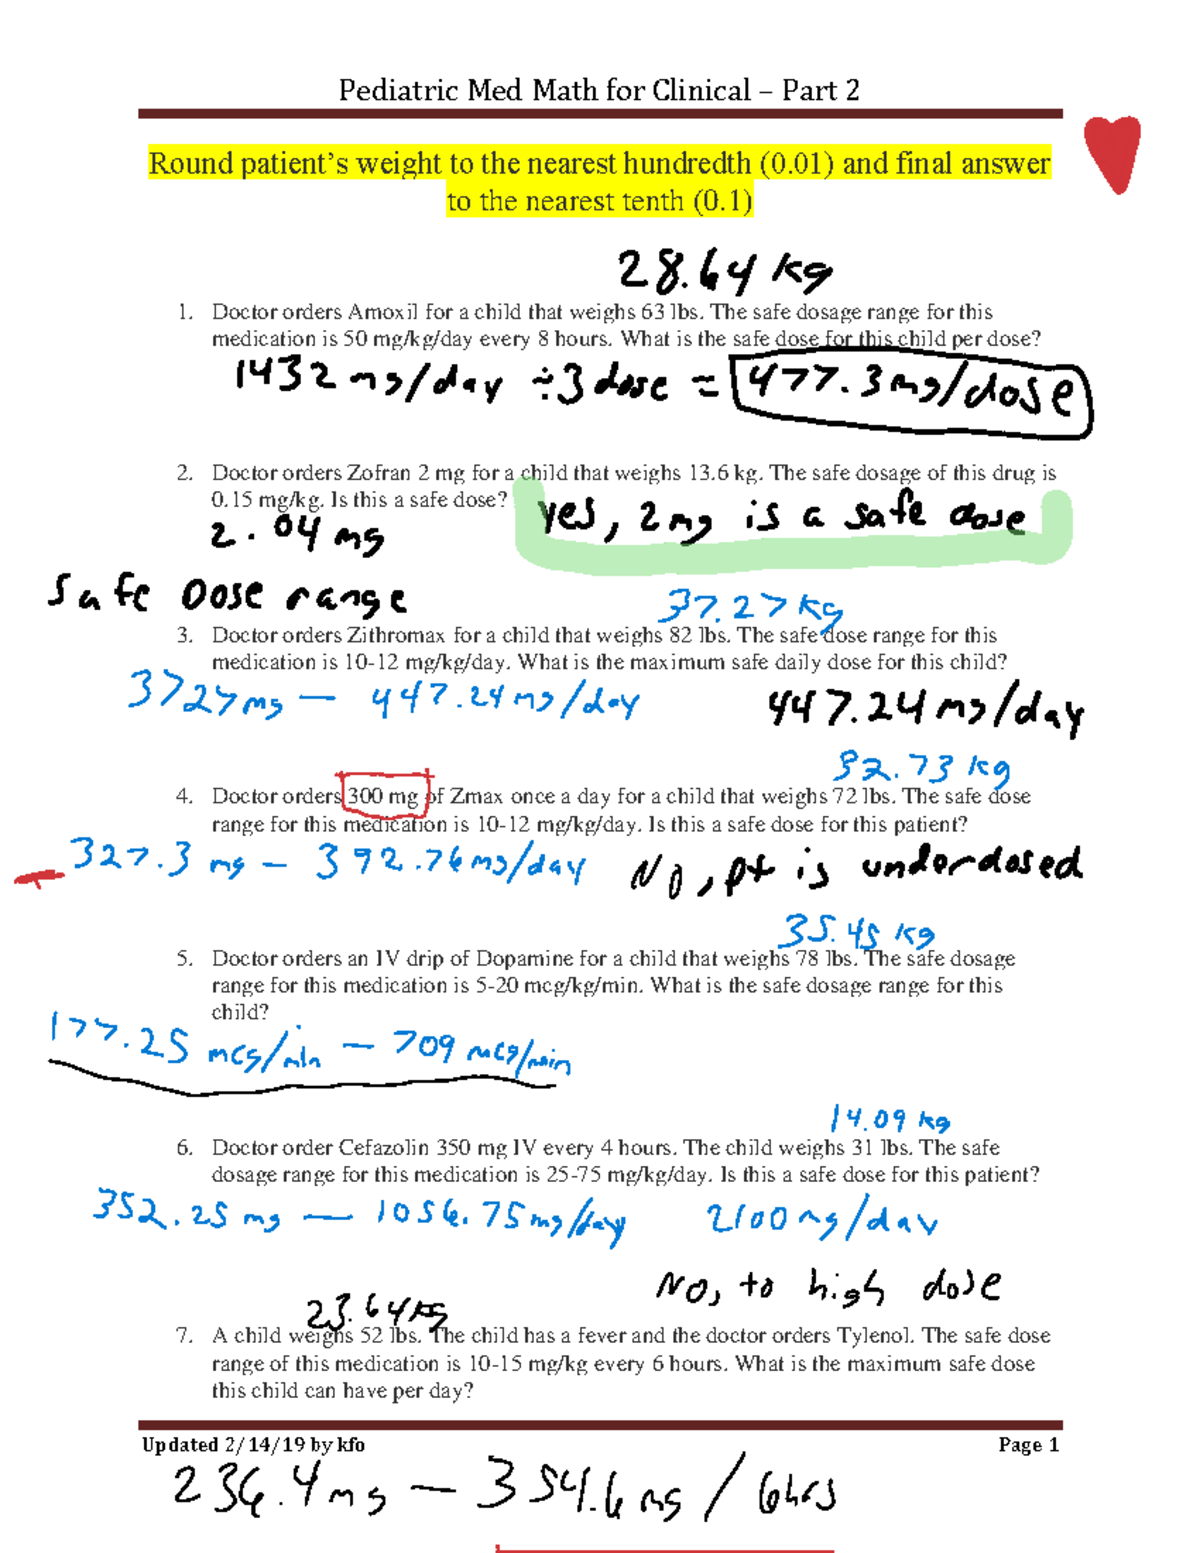 Pediatric Med Math for Clinical – Part 2
Round patient's weight to the nearest hundredth (0.01) and final answer
to the nearest tenth (0.1)
28.64 kg
1. Doctor orders Amoxil for a child that weighs 63 lbs. The safe dosage range for this
medication is 50 mg/kg/day every 8 hours. What is the safe dose for this child per dose?
1432 mg/day ÷ 3 dose = 477.3 mg/dose
2. Doctor orders Zofran 2 mg for a child that weighs 13.6 kg. The safe dosage of this drug is
0.15 mg/kg. Is this a safe dose?
yes, 2 mg is a safe dose
2.04 mg
Safe Dose range
37.27 kg
3. Doctor orders Zithromax for a child that weighs 82 lbs. The safe dose range for this
medication is 10-12 mg/kg/day. What is the maximum safe daily dose for this child?
3727 mg — 447.24 mg/day
447.24 mg/day
32.73 kg
4. Doctor orders 300 mg of Zmax once a day for a child that weighs 72 lbs. The safe dose
range for this medication is 10-12 mg/kg/day. Is this a safe dose for this patient?
327.3 mg — 392.76 mg/day
No, pt is underdosed
35.45 kg
5. Doctor orders an IV drip of Dopamine for a child that weighs 78 lbs. The safe dosage
range for this medication is 5-20 mcg/kg/min. What is the safe dosage range for this
child?
177.25 mcg/min — 709 mcg/min
14.09 kg
6. Doctor order Cefazolin 350 mg IV every 4 hours. The child weighs 31 lbs. The safe
dosage range for this medication is 25-75 mg/kg/day. Is this a safe dose for this patient?
352.25 mg — 1056.75 mg/day
2100 mg/day
No, to high dose
23.64 kg
7. A child weighs 52 lbs. The child has a fever and the doctor orders Tylenol. The safe dose
range of this medication is 10-15 mg/kg every 6 hours. What is the maximum safe dose
this child can have per day?
Updated 2/14/19 by kfo
Page 1
236.4 mg — 354.6 mg / 6hrs